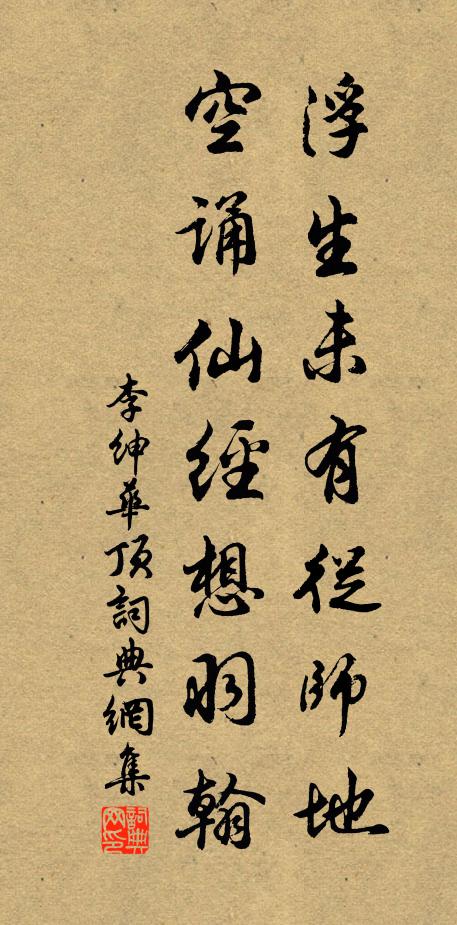 浮生未有從師地
空誦仙經想羽翰
李紳華頂詞典網集
詞典网印